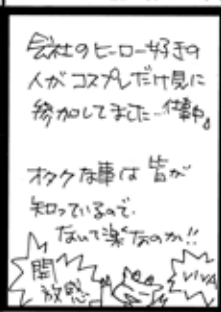 会社のヒーロー好きの
人がコスプレだけ見に
参加してました…仕事中。
オタクな事は皆が
知っているので、
なんて楽なのか!!
開放感
VIVA